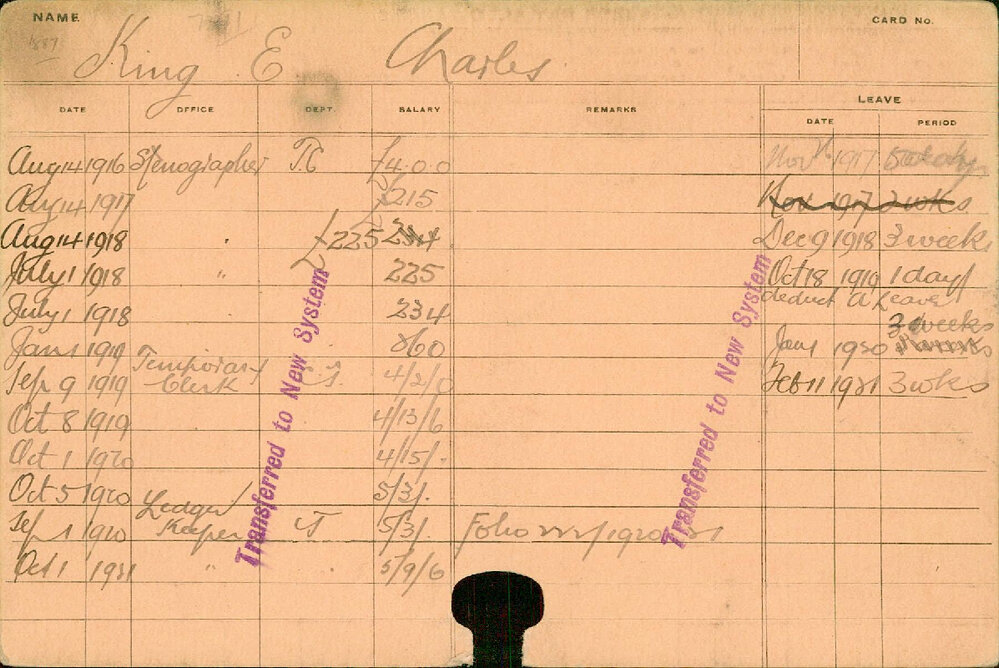 NAME
CARD No.
1887
King E Charles
DATE OFFICE DEPT. SALARY REMARKS LEAVE
DATE PERIOD
Aug 14 1916 Stenographer T.C £400 Nov 1917
Aug 14 1917 £215 Nov 1917 2 wks
Aug 14 1918 " £225 234 Dec 9 1918 3 weeks
July 1 1918 " 225 Oct 18 1919 1 day
deduct a Leave
July 1 1918 234
3 weeks
Jan 1 1919 260 Jan 1 1920
Temporary
Sep 9 1919 Clerk 4/2/0 Feb 11 1921 3 wks
Oct 8 1919 4/13/6
Oct 1 1920 4/15/-
Oct 5 1920 5/3/-
Ledger
Sep 1 1920 Keeper 5/3/- Folio
Oct 1 1921 " 5/9/6
Transferred to New System
Transferred to New System